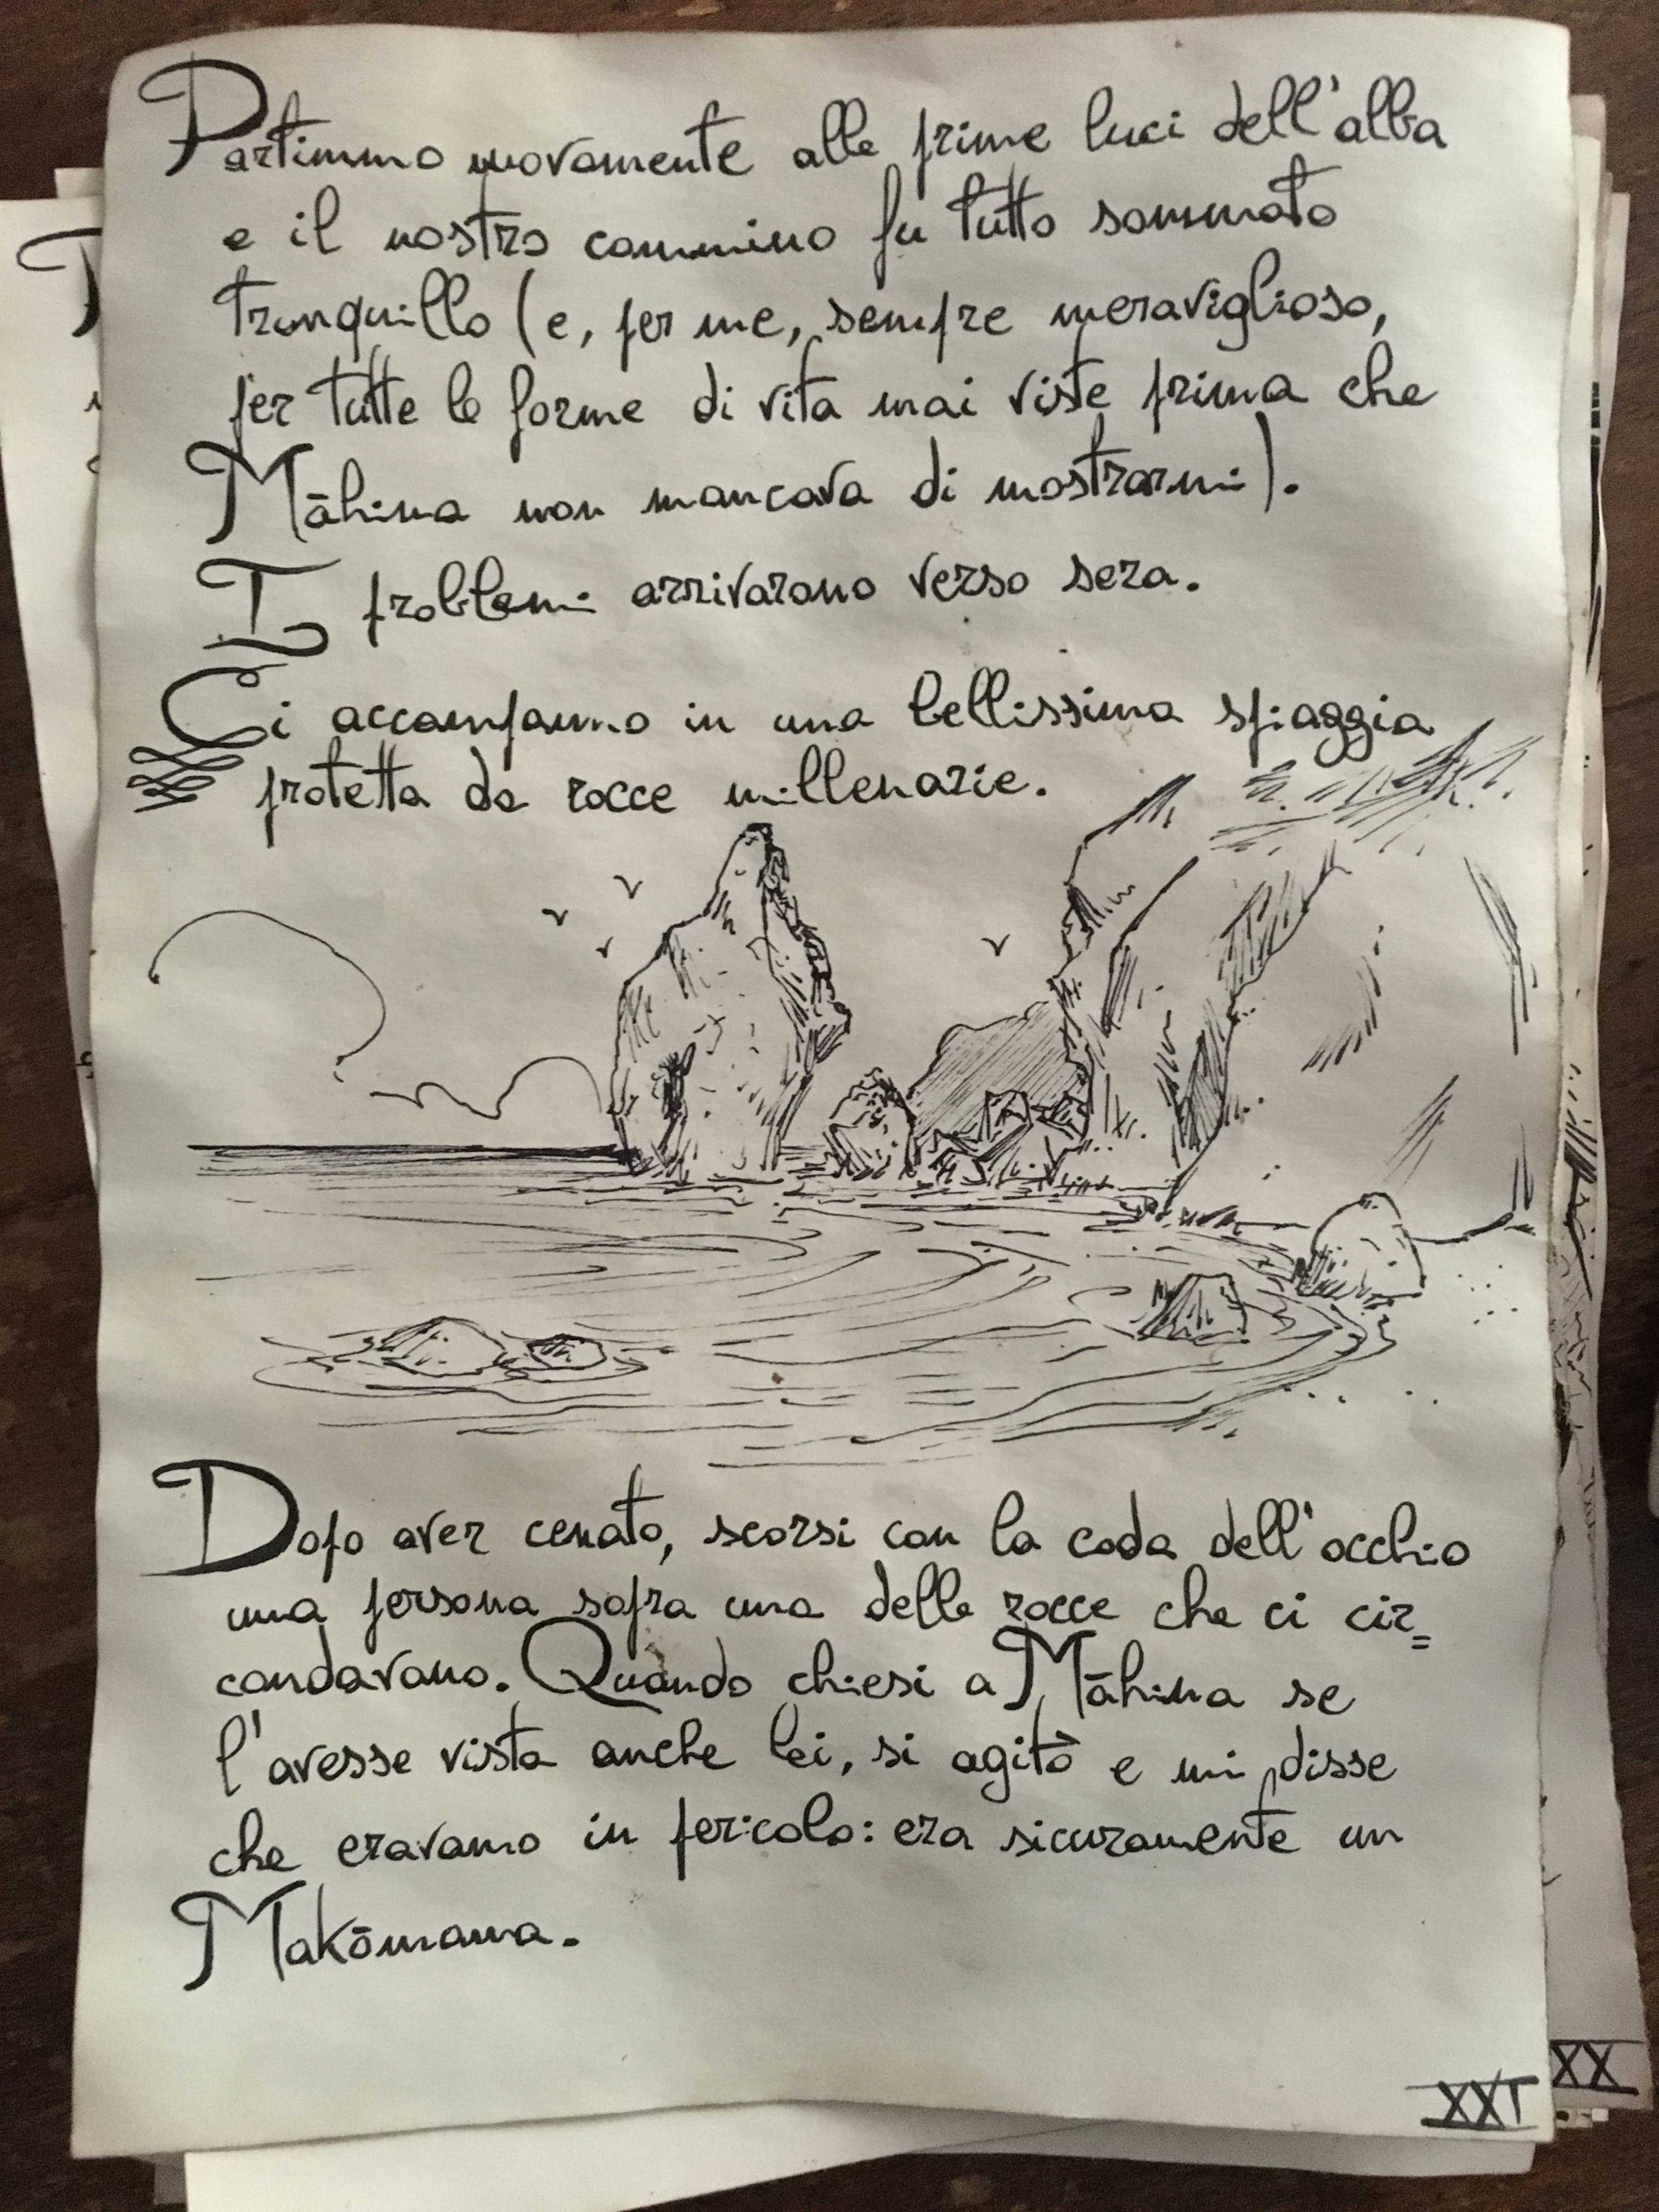 Partimmo nuovamente alle prime luci dell'alba
e il nostro cammino fu tutto sommato
tranquillo (e, per me, sempre meraviglioso,
per tutte le forme di vita mai viste prima che
Māhina non mancava di mostrarmi).
I problemi arrivarono verso sera.
Ci accampammo in una bellissima spiaggia
protetta da rocce millenarie.
Dopo aver cenato, scorsi con la coda dell'occhio
una persona sopra una delle rocce che ci cir=
condavano. Quando chiesi a Māhina se
l'avesse vista anche lei, si agitò e mi disse
che eravamo in pericolo: era sicuramente un
Makōmama.
XXI
XX